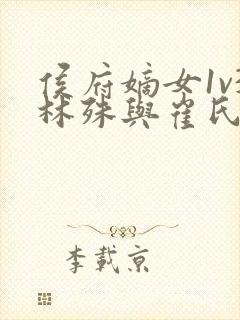 侯府嫡女1v
林殊與崔氏
李載京